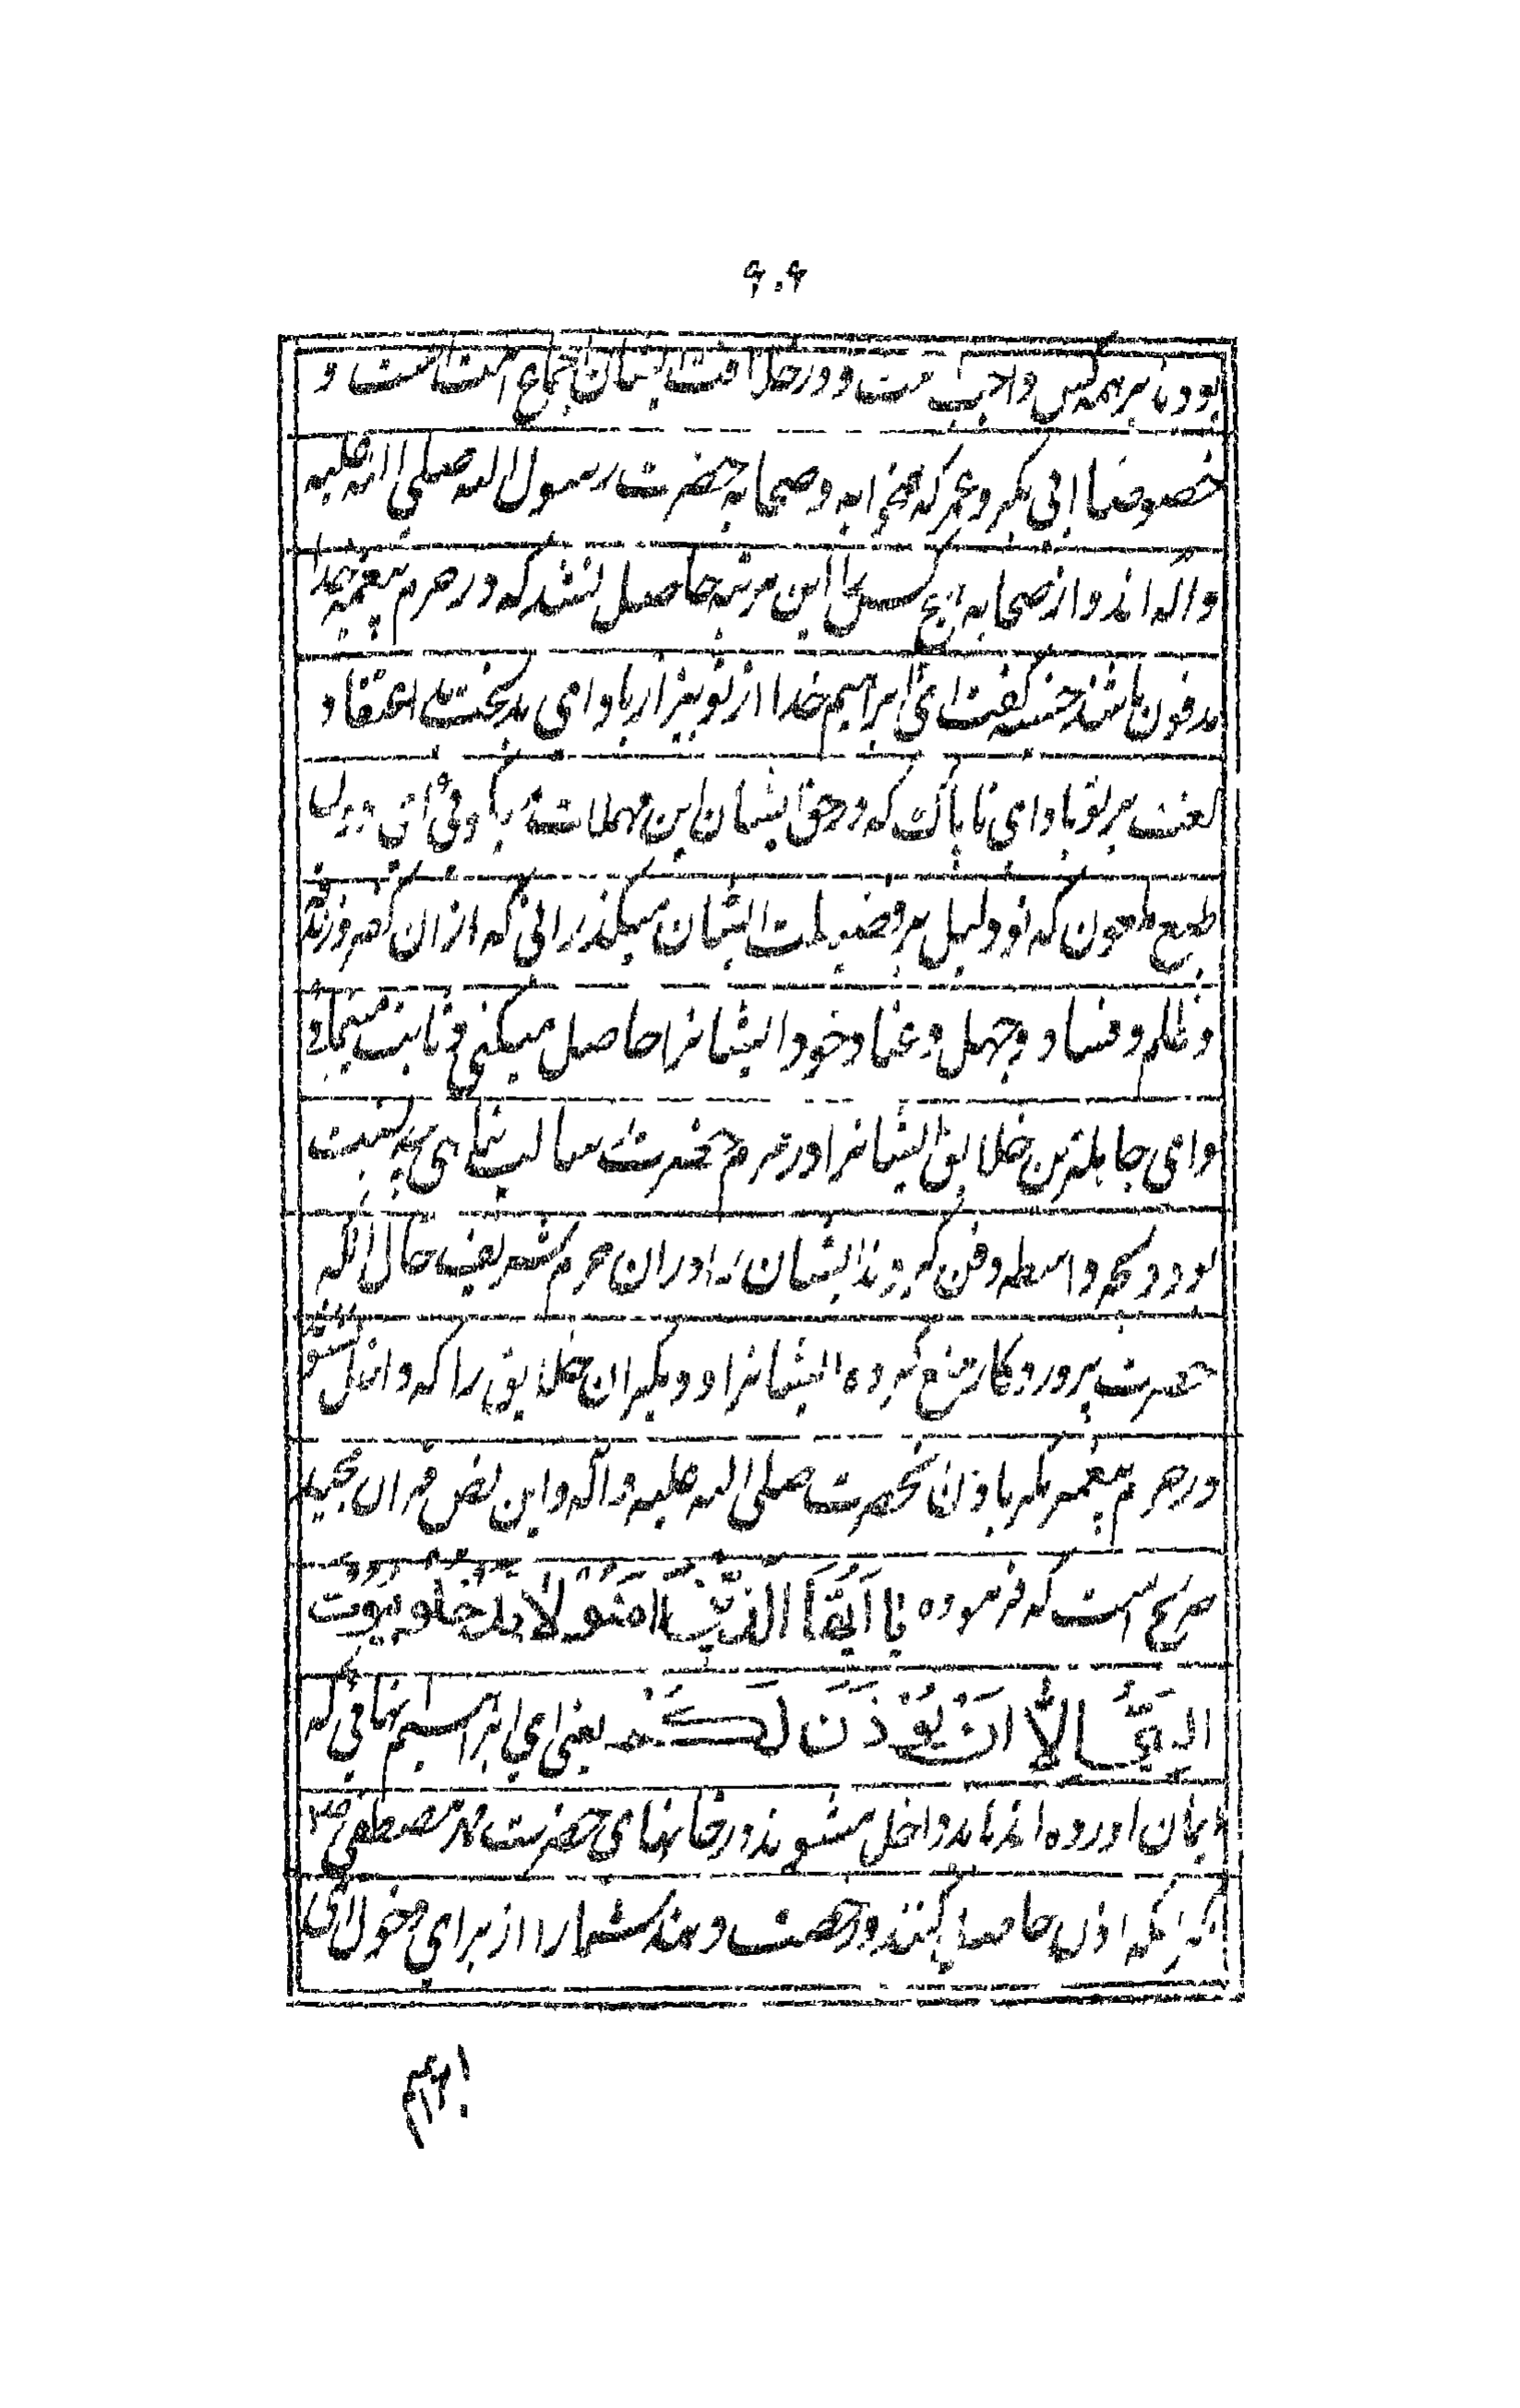 ۹۰۹
بود و تا بر همه کس واجب است و در خلافت ایشان اجماع امت است و
خصوصا ابی بکر و عمر که صحابه حضرت رسول الله صلی الله علیه
و اله اند و از صحابه هیچ کس را این مرتبه حاصل نشد که در حرم پیغمبر خدا
مدفون باشند حسنیه گفت ای ابراهیم خدا از تو بیزار باد ای بدبخت بی اعتقاد
لعنت بر تو باد ای ناپاک که در حق ایشان این مهملات
طبع ملعون که تو دلیل بر فضیلت ایشان میگذرانی که از آن کفر و زندقه
و ظلم و فساد و جهل و عناد خود ایشانرا حاصل میکنی و ثابت مینمائی
و ای جاهلترین خلایق ایشانرا در حرم حضرت رسالت پناهی چه نسبت
بود و بچه واسطه دفن کردند ایشان را در ان حرم شریف حال آنکه
حضرت پروردگار منع کرده ایشانرا و دیگران خلایق را که داخل نشوند
در حرم پیغمبر مگر باذن آنحضرت صلی الله علیه و آله و این نص قران مجید
صریح است که فرموده یَا اَیُّهَا الَّذِیْنَ اٰمَنُو لَا تَدْخُلُو بُیُوتَ
النَّبِیِّ اِلَّا اَنْ یُؤْذَنَ لَکُمْ یعنی ای ابراهیم انهائی که
ایمان اورده اند نباید داخل شوند در خانهای حضرت محمد مصطفی ص
مگر انکه اذن حاصل کنند و رخصت دهند شما را از برای دخول ای
ابراهیم